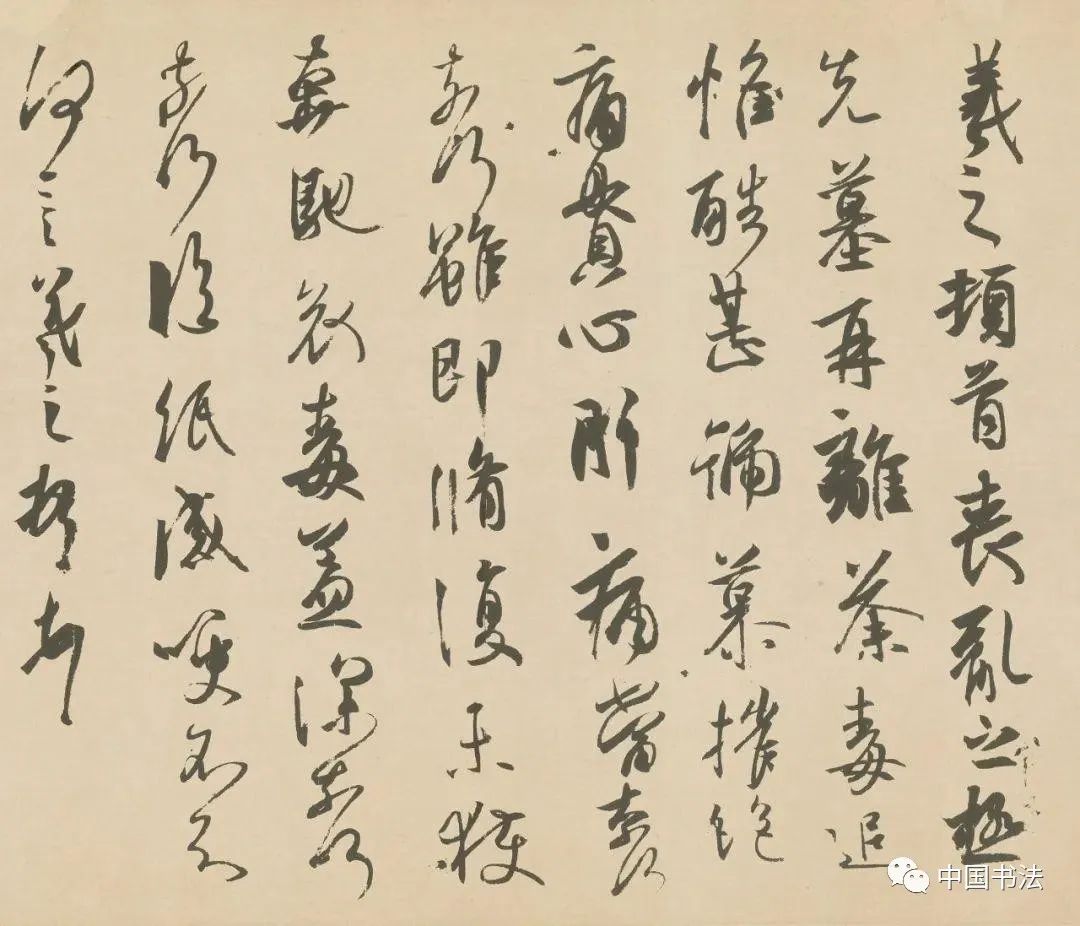 羲之頓首喪亂之極
先墓再離荼毒追
惟酷甚號慕摧絶
痛貫心肝痛當奈何
奈何雖即脩復未獲
奔馳哀毒益深奈何
奈何臨紙感哽不知
何言羲之頓首頓首
中国书法